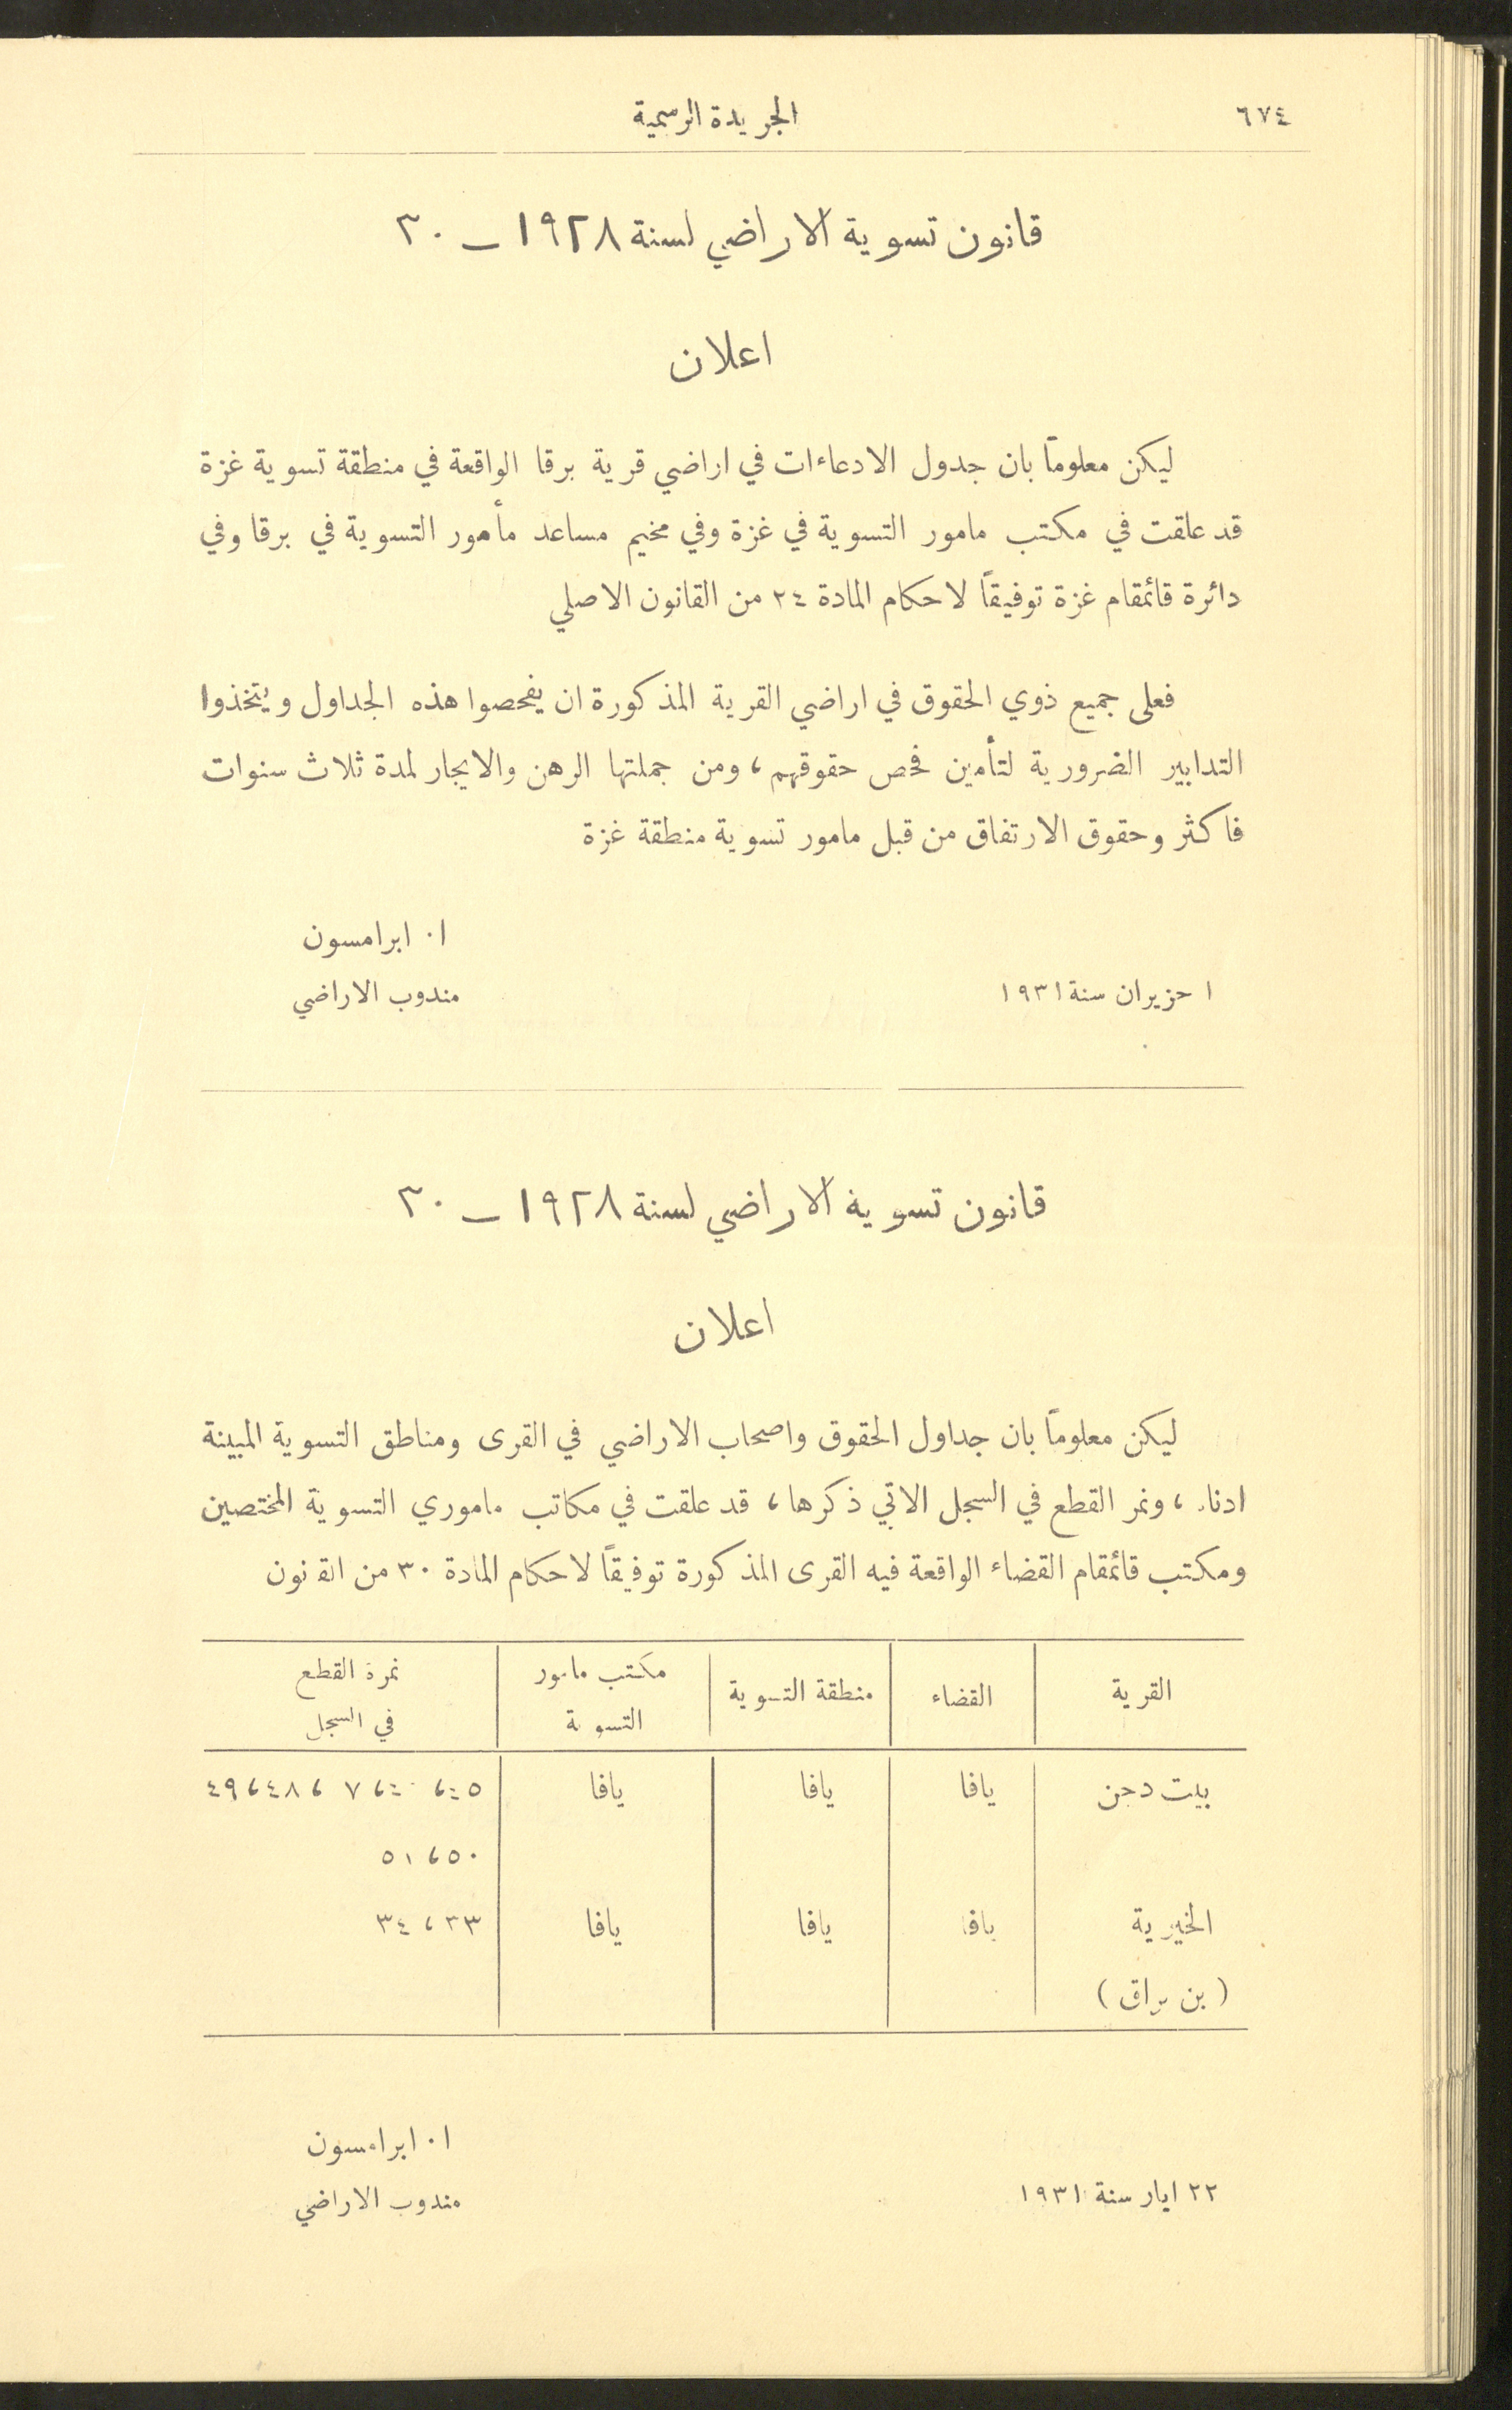 ٦٧٤
الجريدة الرسمية
قانون تسوية الاراضي لسنة ١٩٢٨ – ٣٠
اعلان
ليكن معلوماً بان جدول الادعاءات في اراضي قرية برقا الواقعة في منطقة تسوية غزة
قد علقت في مكتب مامور التسوية في غزة وفي مخيم مساعد مأمور التسوية في برقا وفي
دائرة قائمقام غزة توفيقاً لاحكام المادة ٢٤ من القانون الاصلي
فعلى جميع ذوي الحقوق في اراضي القرية المذكورة ان يفحصوا هذه الجداول ويتخذوا
التدابير الضرورية لتأمين فحص حقوقهم، ومن جملتها الرهن والايجار لمدة ثلاث سنوات
فاكثر وحقوق الارتفاق من قبل مامور تسوية منطقة غزة
ا. ابرامسون
١ حزيران سنة ١٩٣١
مندوب الاراضي
قانون تسوية الاراضي لسنة ١٩٢٨ – ٣٠
اعلان
ليكن معلوماً بان جداول الحقوق واصحاب الاراضي في القرى ومناطق التسوية المبينة
ادناه، ونمر القطع في السجل الاتي ذكرها، قد علقت في مكاتب ماموري التسوية المختصين
ومكتب قائمقام القضاء الواقعة فيه القرى المذكورة توفيقاً لاحكام المادة ٣٠ من القانون
القرية القضاء منطقة التسوية مكتب مامور التسوية نمرة القطع في السجل
بيت دجن يافا يافا يافا ٤٥، ٤٨، ٤٩
٥٠، ٥١
الخيرية يافا يافا يافا ٣٣، ٣٤
(بن براق)
ا. ابرامسون
٢٢ ايار سنة ١٩٣١
مندوب الاراضي